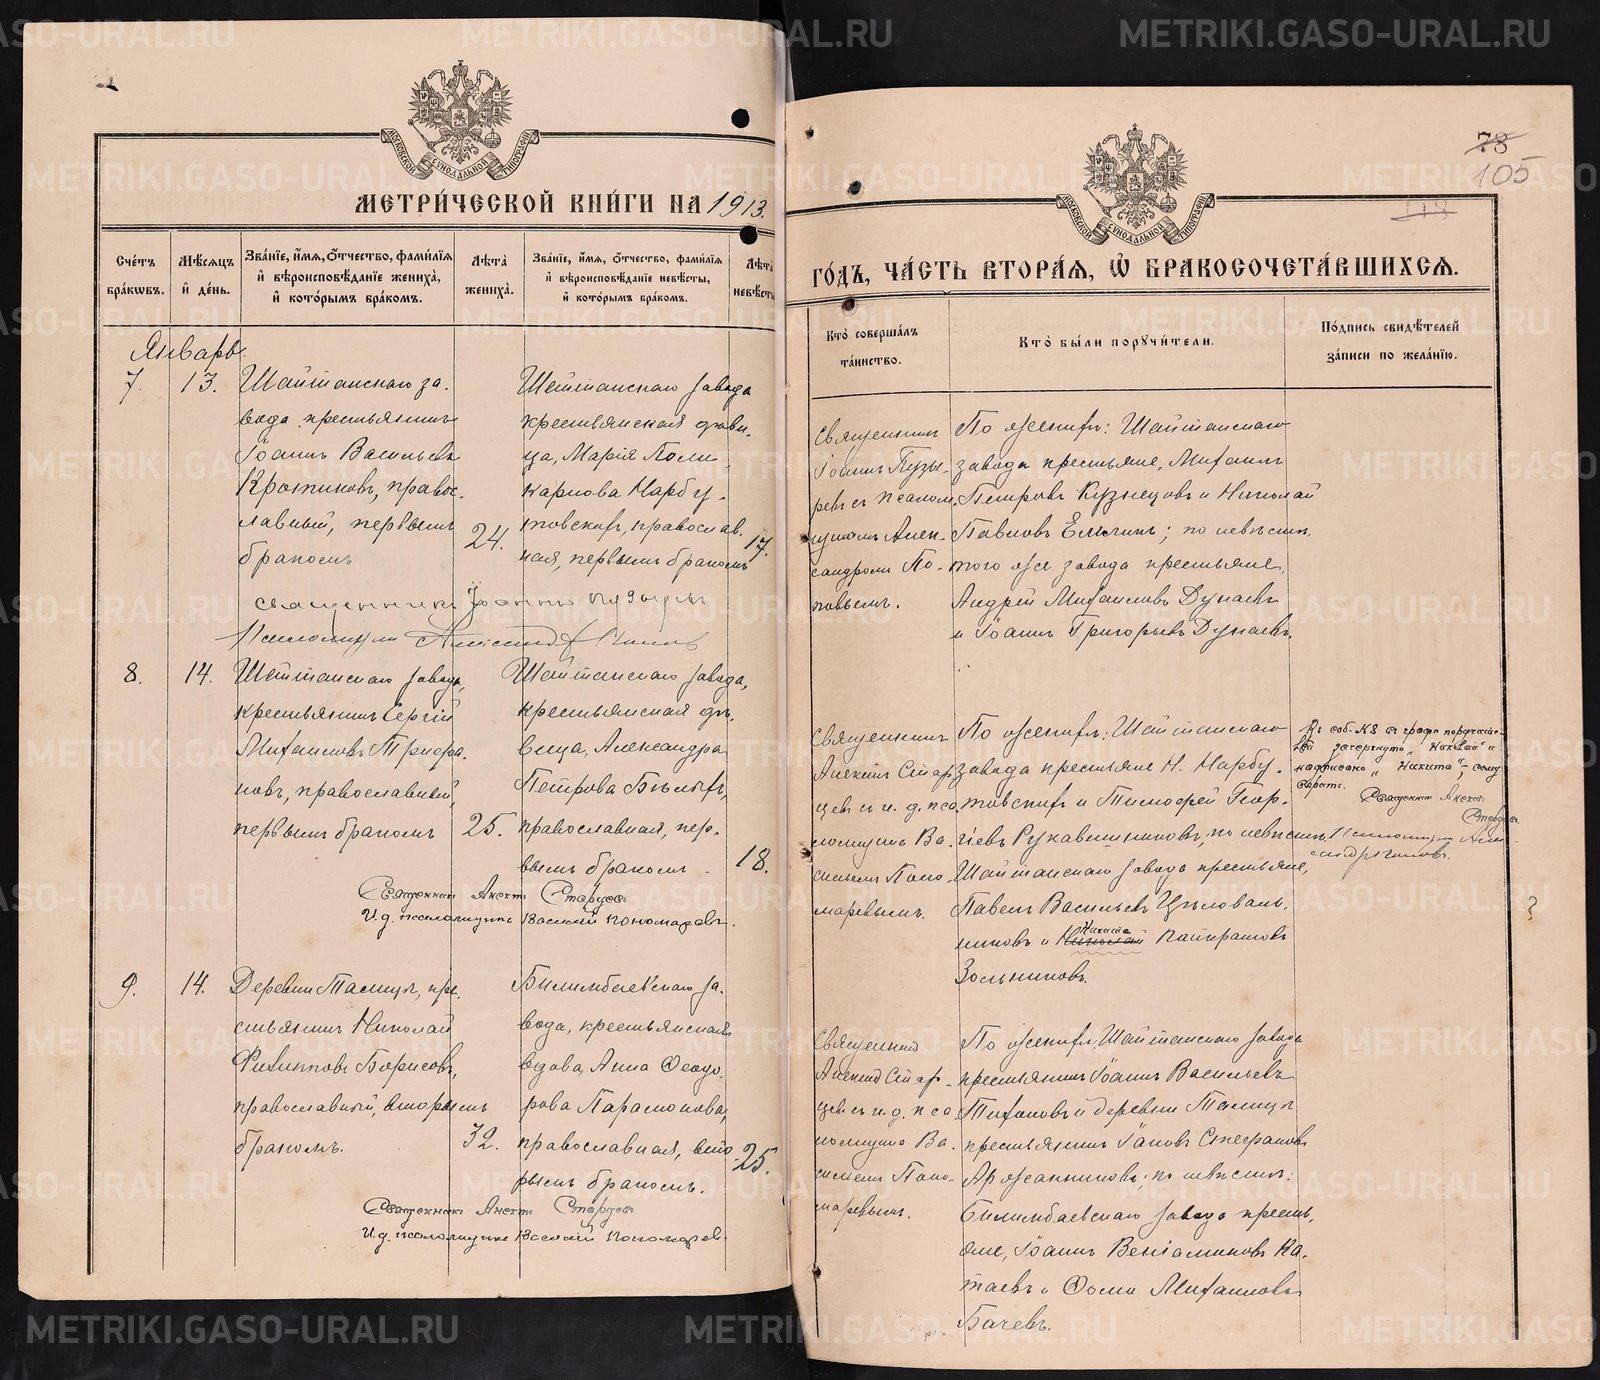 МЕТРИ́ЧЕСКОЙ КНИ́ГИ НА 1913.
Сче́тъ бра́кѡвъ.
Мѣ́сяцъ и҆ де́нь.
Зва́нїе, и҆́мѧ, ѻ҆́тчество, фами́лїѧ и҆ вѣроисповѣ́данїе жениха̀, и҆ кото́рымъ бра́комъ.
Лѣ́та жениха̀.
Зва́нїе, и҆́мѧ, ѻ҆́тчество, фами́лїѧ и҆ вѣроисповѣ́данїе невѣ́сты, и҆ кото́рымъ бра́комъ.
Лѣ́та невѣ́сты
Январь.
7.
13.
Шайтанскаго за-
вода крестьянинъ
Іоаннъ Васильевъ
Кротиковъ, правос-
лавный, первымъ
бракомъ
24.
Шайтанскаго завода
крестьянская дѣви-
ца, Марія Поли-
карпова Нарбу-
товскихъ, православ-
ная, первымъ бракомъ
17.
Священникъ Іоаннъ Пузыревъ
Псаломщикъ Александръ Поповъ
8.
14.
Шайтанскаго завода,
крестьянинъ Сергій
Михаиловъ Трифа-
новъ, православный,
первымъ бракомъ
25.
Шайтанскаго завода,
крестьянская дѣ-
вица, Александра
Петрова Бѣлыхъ,
православная, пер-
вымъ бракомъ
18.
Священникъ Алексѣй Старцевъ
И.д. псаломщика Василій Пономаревъ.
9.
14.
Деревни Талицы, кре-
стьянинъ Николай
Филипповъ Борисовъ,
православный, вторымъ
бракомъ.
32.
Билимбаевскаго за-
вода, крестьянская
вдова, Анна Ѳеодо-
рова Парамонова,
православная, вто-
рымъ бракомъ.
25.
Священникъ Алексѣй Старцевъ
И.д. псаломщика Василій Пономаревъ.
78
105
118
ГО́ДЪ, ЧА́СТЬ ВТОРА́Ѧ, Ѽ БРАКОСОЧЕТА́ВШИХСѦ.
Кто̀ соверша́лъ та́инство.
Кто̀ бы́ли порꙋчи́тели.
По́дпись свидѣ́телей за́писи по жела́нїю.
Священникъ
Іоаннъ Пузы-
ревъ съ псалом-
щикомъ Алек-
сандромъ По-
повымъ.
По женихѣ: Шайтанскаго
завода крестьяне, Михаилъ
Петровъ Кузнецовъ и Николай
Павловъ Ельчинъ; по невѣстѣ:
того же завода крестьяне,
Андрей Михаиловъ Дунаевъ
и Іоаннъ Григорьевъ Дунаевъ.
Священникъ
Алексѣй Стар-
цевъ съ и. д. пса-
ломщика Ва-
силіемъ Поно-
маревымъ.
По женихѣ: Шайтанскаго
завода крестьяне Н. Нарбу-
товскихъ и Тимофей Геор-
гіевъ Рукавишниковъ; по невѣстѣ:
Шайтанскаго завода крестьяне,
Павелъ Васильевъ Цѣловаль-
никовъ и Николай Никита Панкратовъ
Зольниковъ.
Въ соб. N 8 въ графѣ поручите-
лей зачеркнуто „Николай" и
надписано „Никита",
Священникъ Алексѣй
Старцевъ
Священникъ
Алексѣй Стар-
цевъ съ и. д. пса-
ломщика Ва-
силіемъ Поно-
маревымъ.
По женихѣ: Шайтанскаго завода
крестьянинъ Іоаннъ Васильевъ
Тихановъ и деревни Талицы
крестьянинъ Іаковъ Стефановъ
Аржанниковъ; по невѣстѣ:
Билимбаевскаго завода кресть-
яне, Іоаннъ Веніаминовъ Ка-
таевъ и Ѳома Михаиловъ
Бачевъ.
METRIKI.GASO-URAL.RU